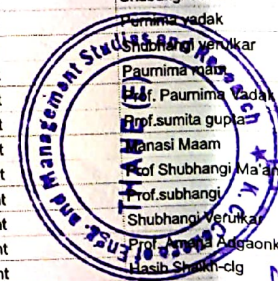 Purnima vadak
nt Shubhangi verulkar
nt Paurnima mam
nt Prof. Paurnima Vadak
nt Prof.sumita gupta
nt Manasi Maam
nt Prof Shubhangi Ma'am
nt Prof.subhangi
nt Shubhangi Verulkar
nt Prof. Adgaonk
nt Hasib Shaikh-clg
K. C. College of Engg. and Management Studies and Research
THANE (E)